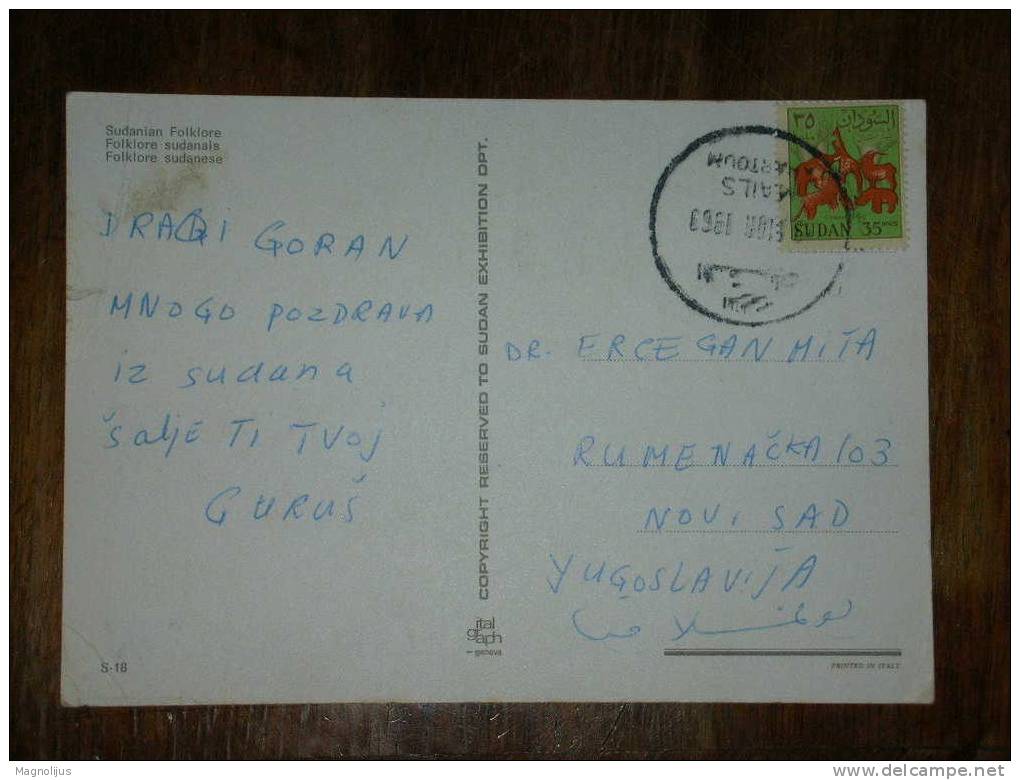 Sudanian Folklore
Folklore sudanais
Folklore sudanese
DRAGI GORAN
MNOGO POZDRAVA
iz sudana
šalje Ti TVoj
GURUŠ
S-18
COPYRIGHT RESERVED TO SUDAN EXHIBITION DPT.
ital
graph
genova
٣٥ السودان
SUDAN 35
1969
DR. ERCEGAN MITA
RUMENAČKA 103
NOVI SAD
YUGOSLAVIJA
يوغسلافيا
PRINTED IN ITALY
Magnolijus
delcampe.net